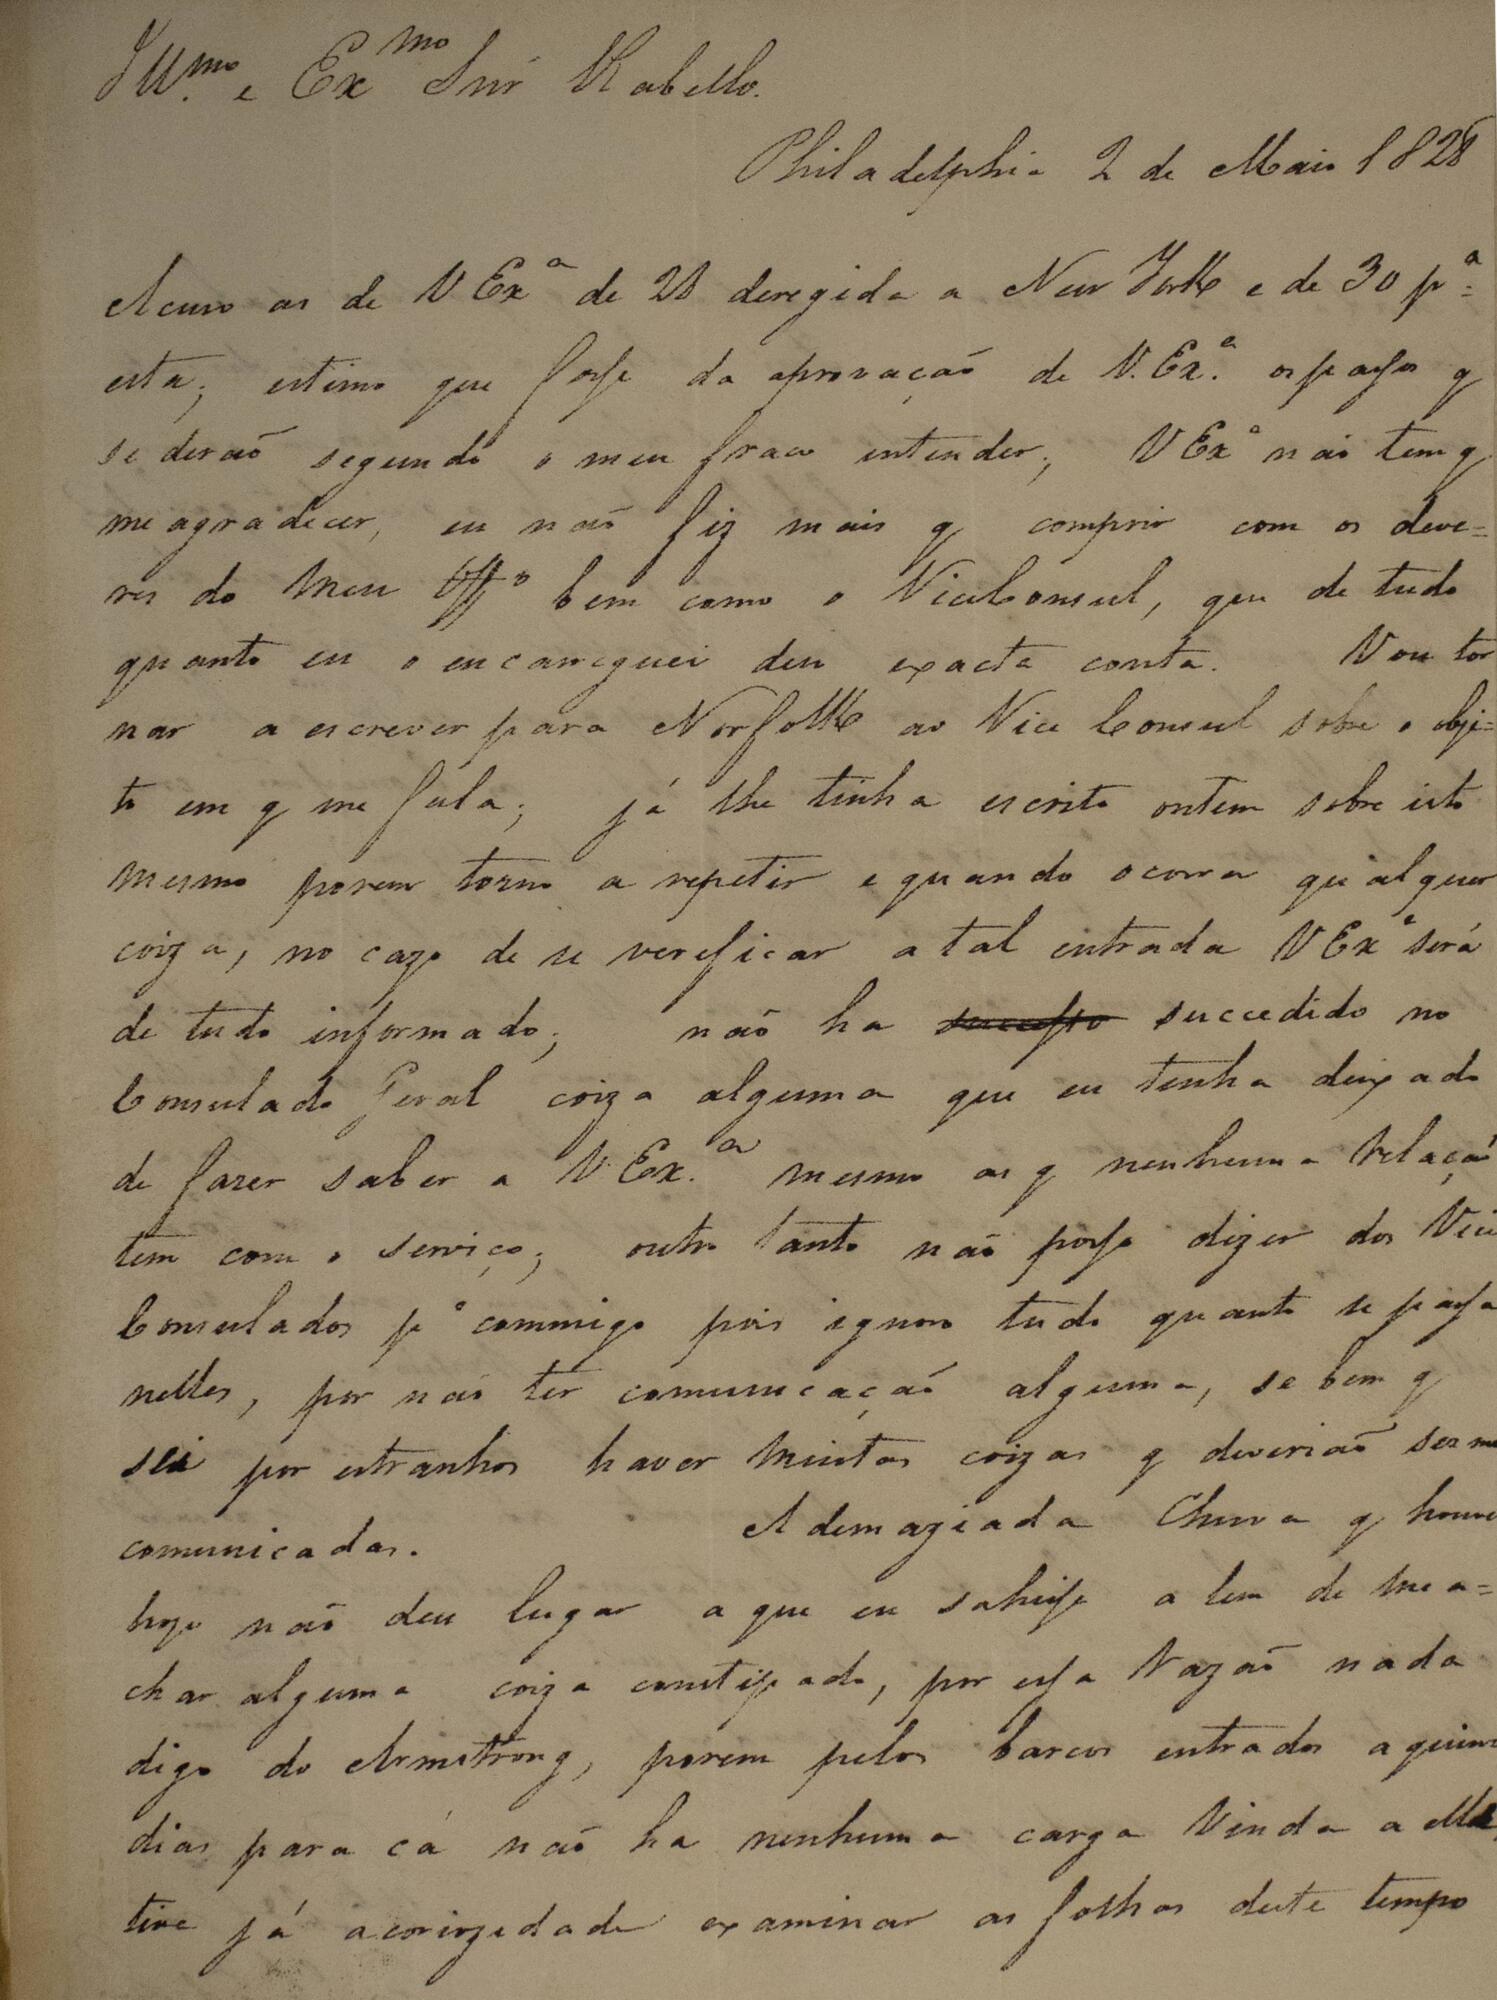 Ill.mo e Exmo Snr Rabello.
Philadelphia 2 de Maio 1828
Acuso as de V Exa de 28 deregida a New York e de 30 pa=
esta; estimo que fosse da aprovação de V. Exa. os passos q
se derão segundo o meu fraco entender; V Exa não tem q
me agradecer, eu não fiz mais q comprir com os deve=
res do meu Offo bem como o ViceConsul, que de tudo
quanto eu o encarreguei deu exacta conta. Vou tor
nar a escrever para Norfolk ao Vice Consul sobre o obje=
to em q me fala; já lhe tinha escrito ontem sobre isto
mesmo porem torno a repetir e quando ocorra qualquer
coiza, no cazo de se vereficar a tal entrada V Exa será
de tudo informado; não ha successo succedido no
Consulado Geral coiza alguma que eu tenha deixado
de fazer saber a V. Exa. mesmo as q nenhuma relação
tem com o serviço; outro tanto não posso dizer dos Vice
Consulados pa commigo pois ignoro tudo quanto se passa
nelles, por não ter comunicação alguma, se bem q
sei por estranhos haver muitas coizas q deverião ser me
comunicadas. A demaziada Chuva q houve
hoje não deu lugar a que eu sahisse alem de me a=
char alguma coiza constipado, por essa razão nada
digo do Armstrong, porem pelos barcos entrados a quinze
dias para cá não ha nenhuma carga vinda a elle,
tive já a coriozedade examinar as folhas deste tempo